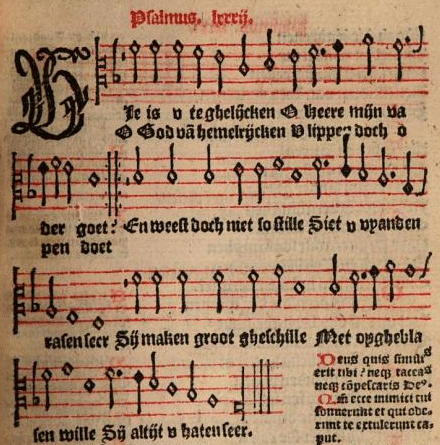 Psalmus. lxxxij.
Wie is v te ghelijcken O heere mijn va
O God vā hemelrijcken V lippen doch o
der goet? En weest doch niet so stille Siet v vyanden
pen doet
rasen seer Sij maken groot gheschille Met opghebla
sen wille Sij altijt v haten seer.
Deus quis similis
erit tibi? neqꝫ taceas
neqꝫ cōpescaris De⁹.
Qm̄ ecce inimici tui
sonnerunt et qui ode-
runt te extulerunt ca-
put.